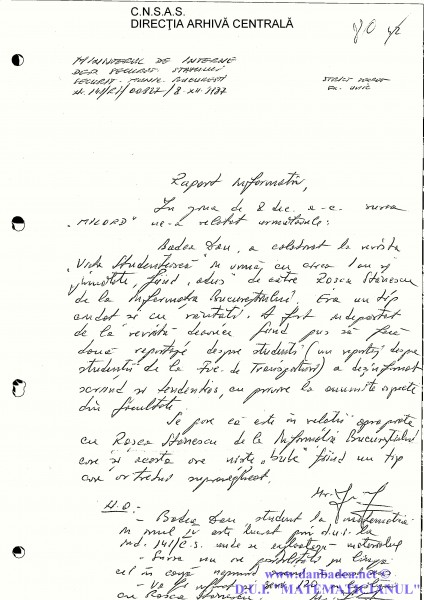 C.N.S.A.S.
DIRECŢIA ARHIVĂ CENTRALĂ
MINISTERUL DE INTERNE
DEP. SECURIT. STATULUI
SECURIT. MUNIC. BUCUREŞTI
STRICT SECRET
EX. UNIC
Raport informativ,
În ziua de 8 dec. a.c. sursa
"MILORD" ne-a relatat următoarele:
Badea Dan, a colaborat la revista
"Viaţa Studenţească" în urmă cu circa 1 an şi
jumătate, fiind "adus" de către Roşca Stănescu
de la Informaţia Bucureştiului. Era un tip
ciudat şi cu răutăţi. A fost îndepărtat
de la revistă deoarece fiind pus să facă
două reportaje despre studenţi (un reportaj despre
studenţii de la Fac. de Transporturi) a dezinformat
scriind şi tendenţios, cu privire la anumite aspecte
din facultate.
Se pare că este în relaţii apropiate
cu Roşca Stănescu de la Informaţia Bucureştiului
care şi acesta are nişte "bube" fiind un tip
care ar trebui supravegheat.
N.O:
- Badea Dan student la matematică
în anul IV este lucrat prin d.u.i. la
ind. 141/C.S. unde se exploatează materialul
- Sursa nu are posibilităţi pe lângă
cel în cauză
cu Roşca Stănescu
www.danbadea.net ©
D.U.I. "MATEMATICIANUL"